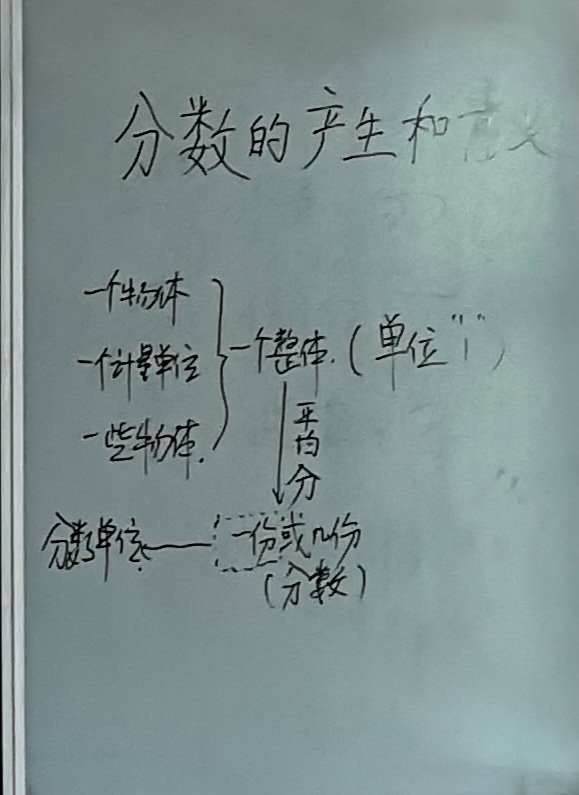 分数的产生和意义
一个物体
一个计量单位
一些物体.
一个整体.(单位"1")
平均分
一份或几份
(分数)
分数单位